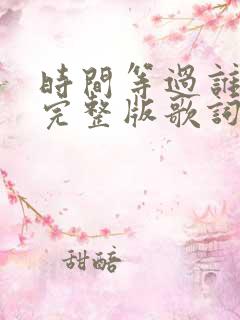 時間等過誰
完整版歌詞
甜醅